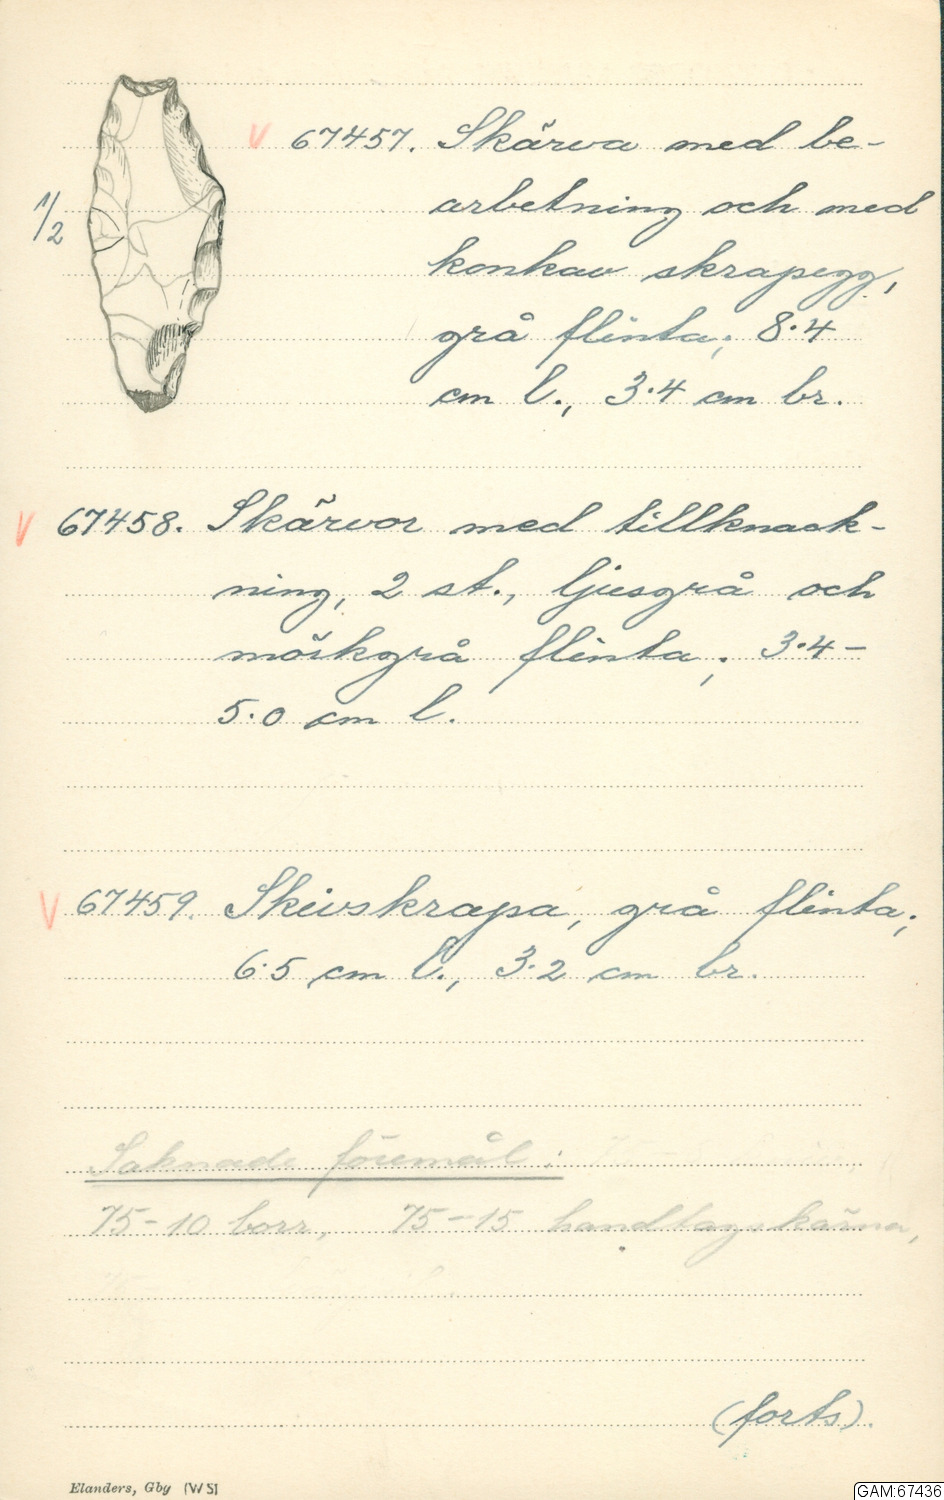 67457. Skärva med be-
arbetning och med
1/2
konkav skrapegg,
grå flinta; 8.4
cm l., 3.4 cm br.
V 67458. Skärvor med tillknack-
ning, 2 st., ljusgrå och
mörkgrå flinta; 3.4-
5.0 cm l.
V 67459. Skivskrapa, grå flinta;
6.5 cm l., 3.2 cm br.
Saknade föremål:
75-10 borr, 75-15 handtagskärna,
(forts).
Elanders, Gby (WS)
GAM:67436